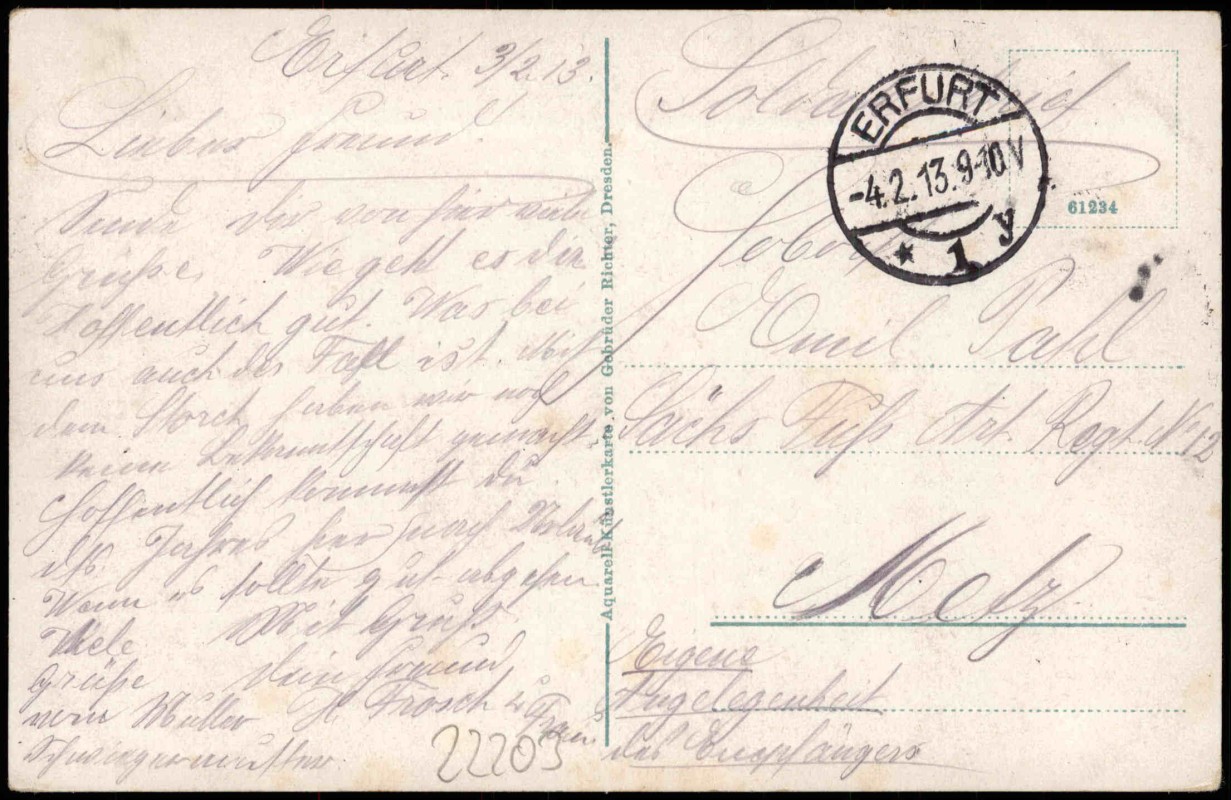 Erfurt. 3/2.13.
Lieber Freund.
Sende dir von hier viele
Grüße. Wie geht es dir
Hoffentlich gut. Was bei
uns auch der Fall ist. Mit
dem Storch haben wir noch
keine Bekanntschaft gemacht.
Hoffentlich kommst du
dss. Jahres hier nach Urlaub
Wenn es sollte gut abgehen
Viele Mit Gruß
Grüße dein Freund
von Mutter H Frosch u Frau
Schwiegermutter
22203
Aquarell-Künstlerkarte von Gebrüder Richter, Dresden.
Soldatenbrief
ERFURT
-4.2.13.9-10V
* 1 y
61234
Emil Pahl
Sächs Fuß Art. Regt. No 12
Metz
Eigene
Angelegenheit
des Empfängers